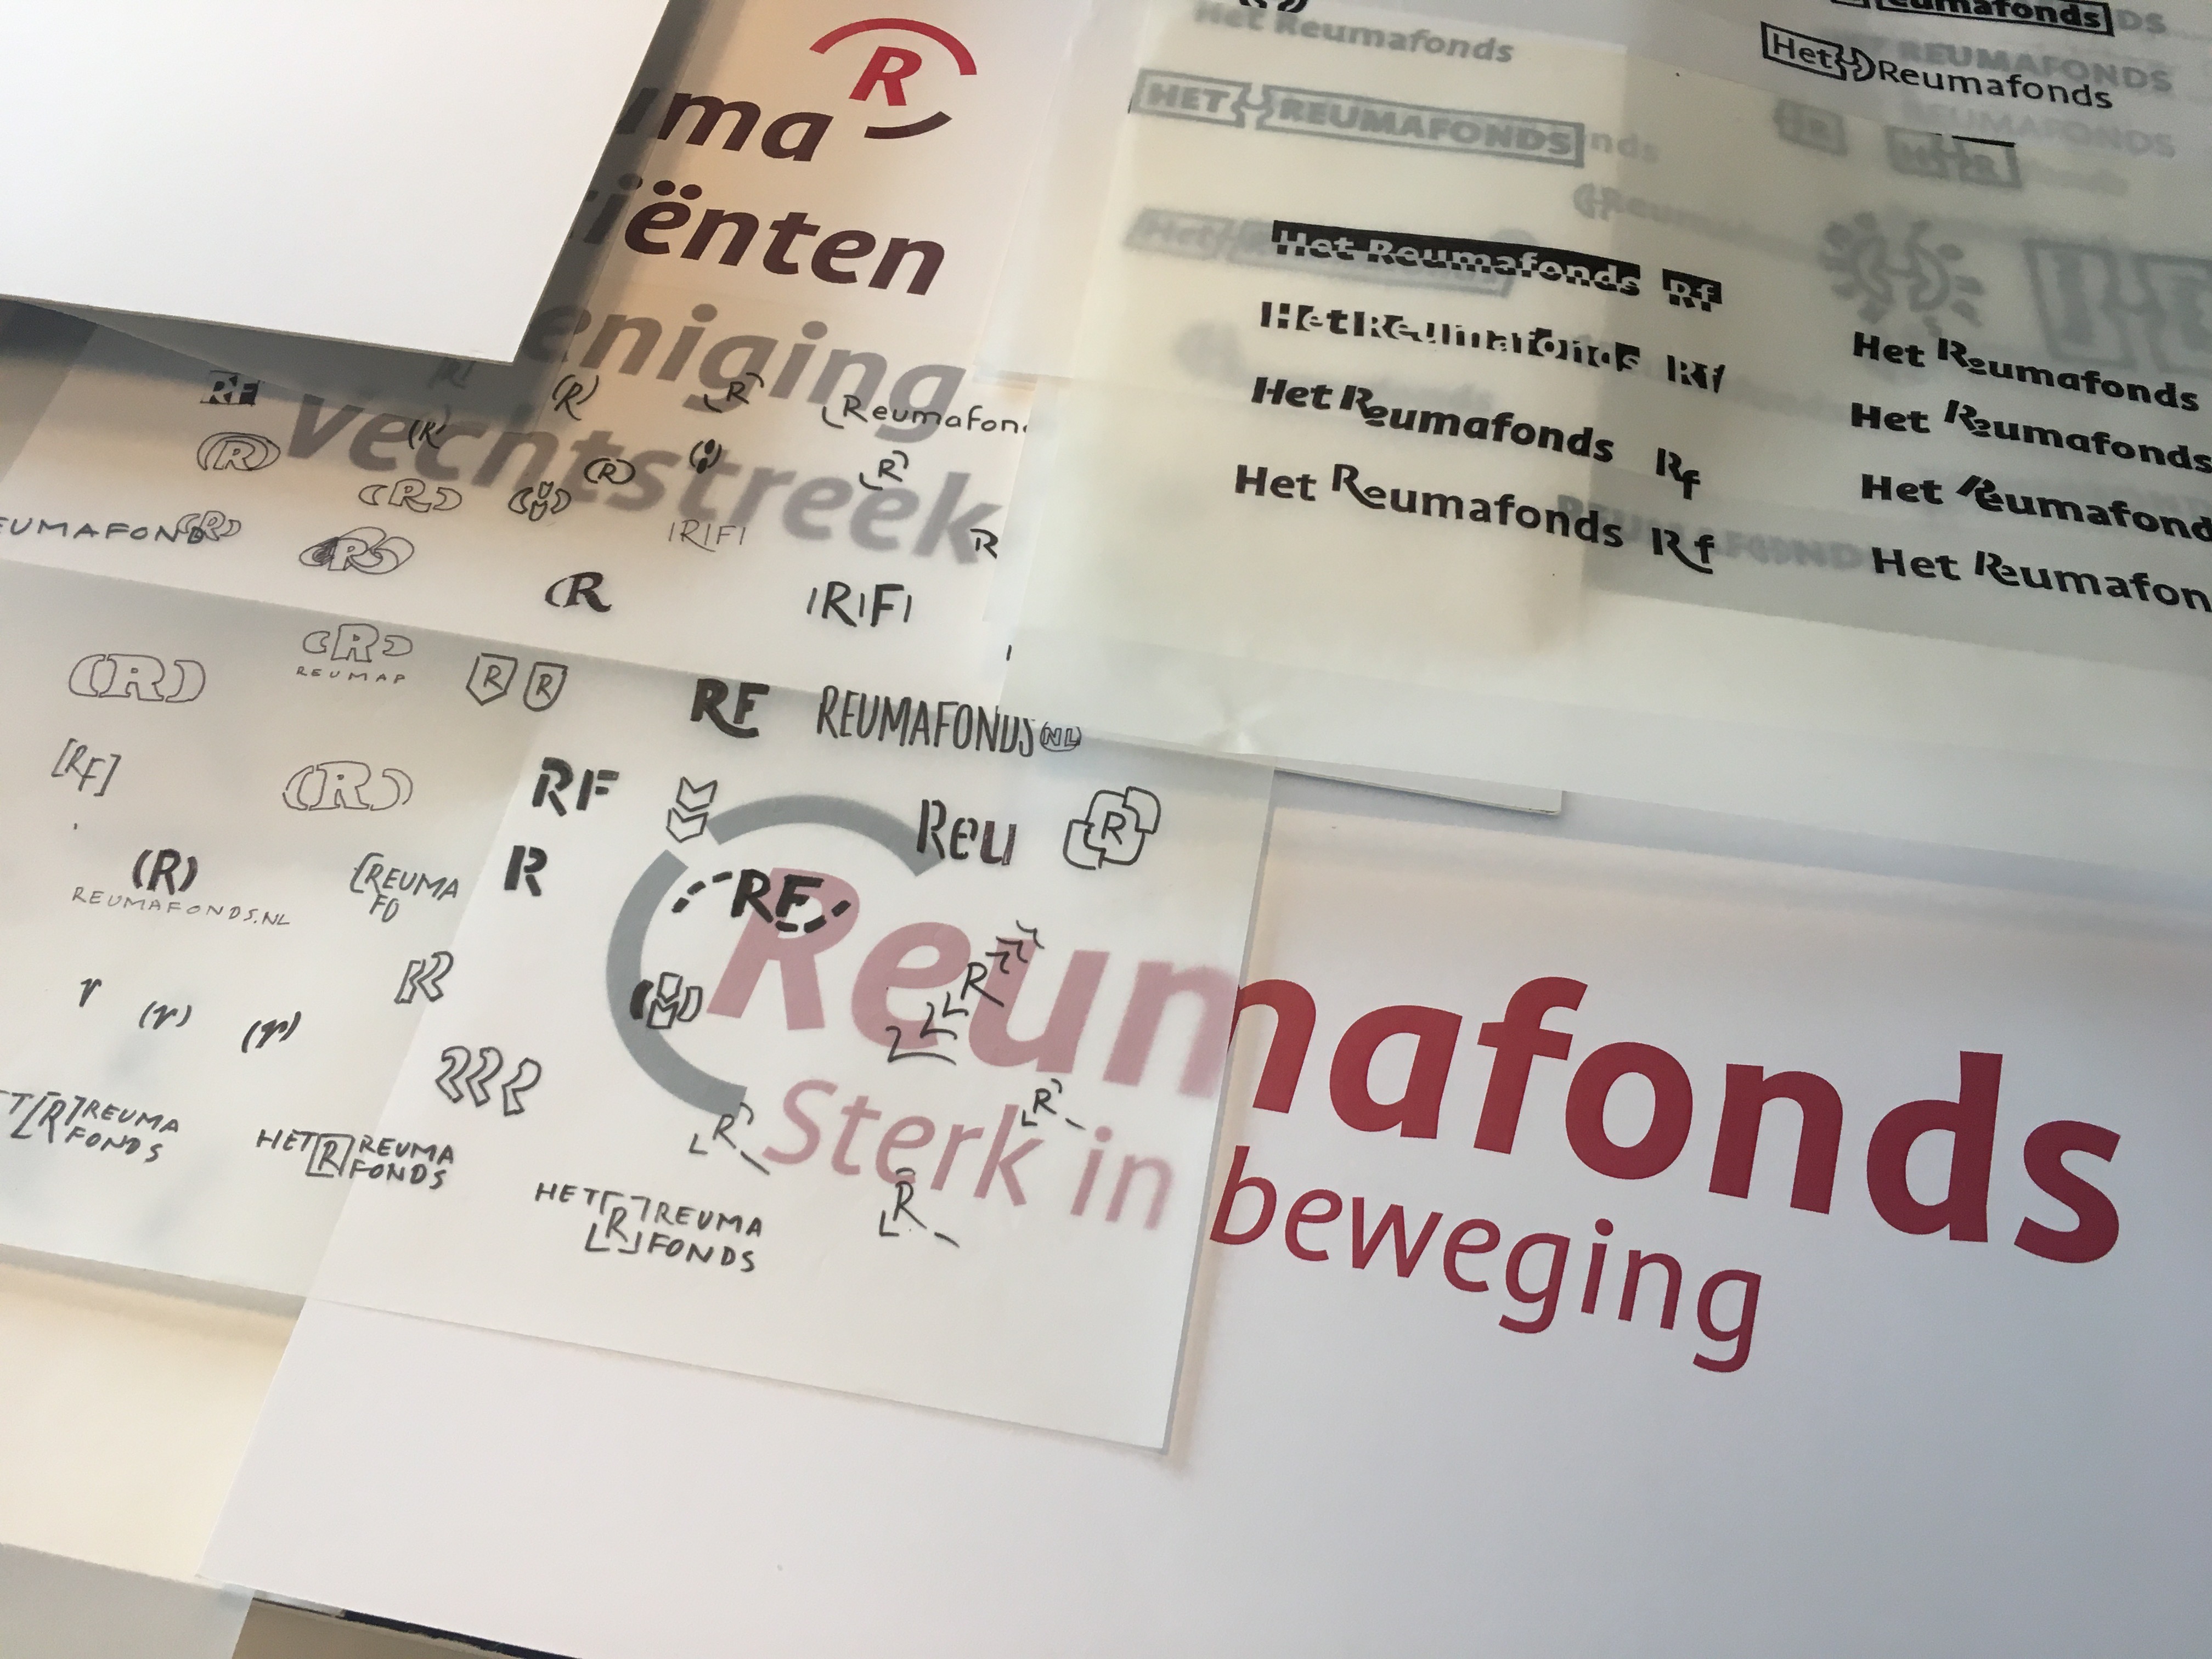 R
uma
iënten
eniging
Vechtstreek
Het Reumafonds
HET REUMAFONDS
nds
Reumafonds DS
Het Reumafonds
REUMAFONDS
REUMAFONDS
Het Reumafonds Rf
Het Reumafonds Rf
Het Reumafonds Rf
Het Reumafonds Rf
Het Reumafonds
Het Reumafonds
Het Reumafond
Het Reumafon
RF
(R)
R
Reumafon
(R)
(R)
(R)
(R)
R
EUMAFOND (R)
R
|R|F|
R
(R
|R|F|
(R)
(R)
REUMAF
R R
RF REUMAFONDS NL
[RF]
(R)
RF
Reu
R
(R)
REUMAFONDS.NL
[REUMA
FO
R
RF
r (r) (r)
R
R
R
R
R
T [R] REUMA
FONDS
HET [R] REUMA
FONDS
HET [R] REUMA
FONDS
Reumafonds
Sterk in beweging